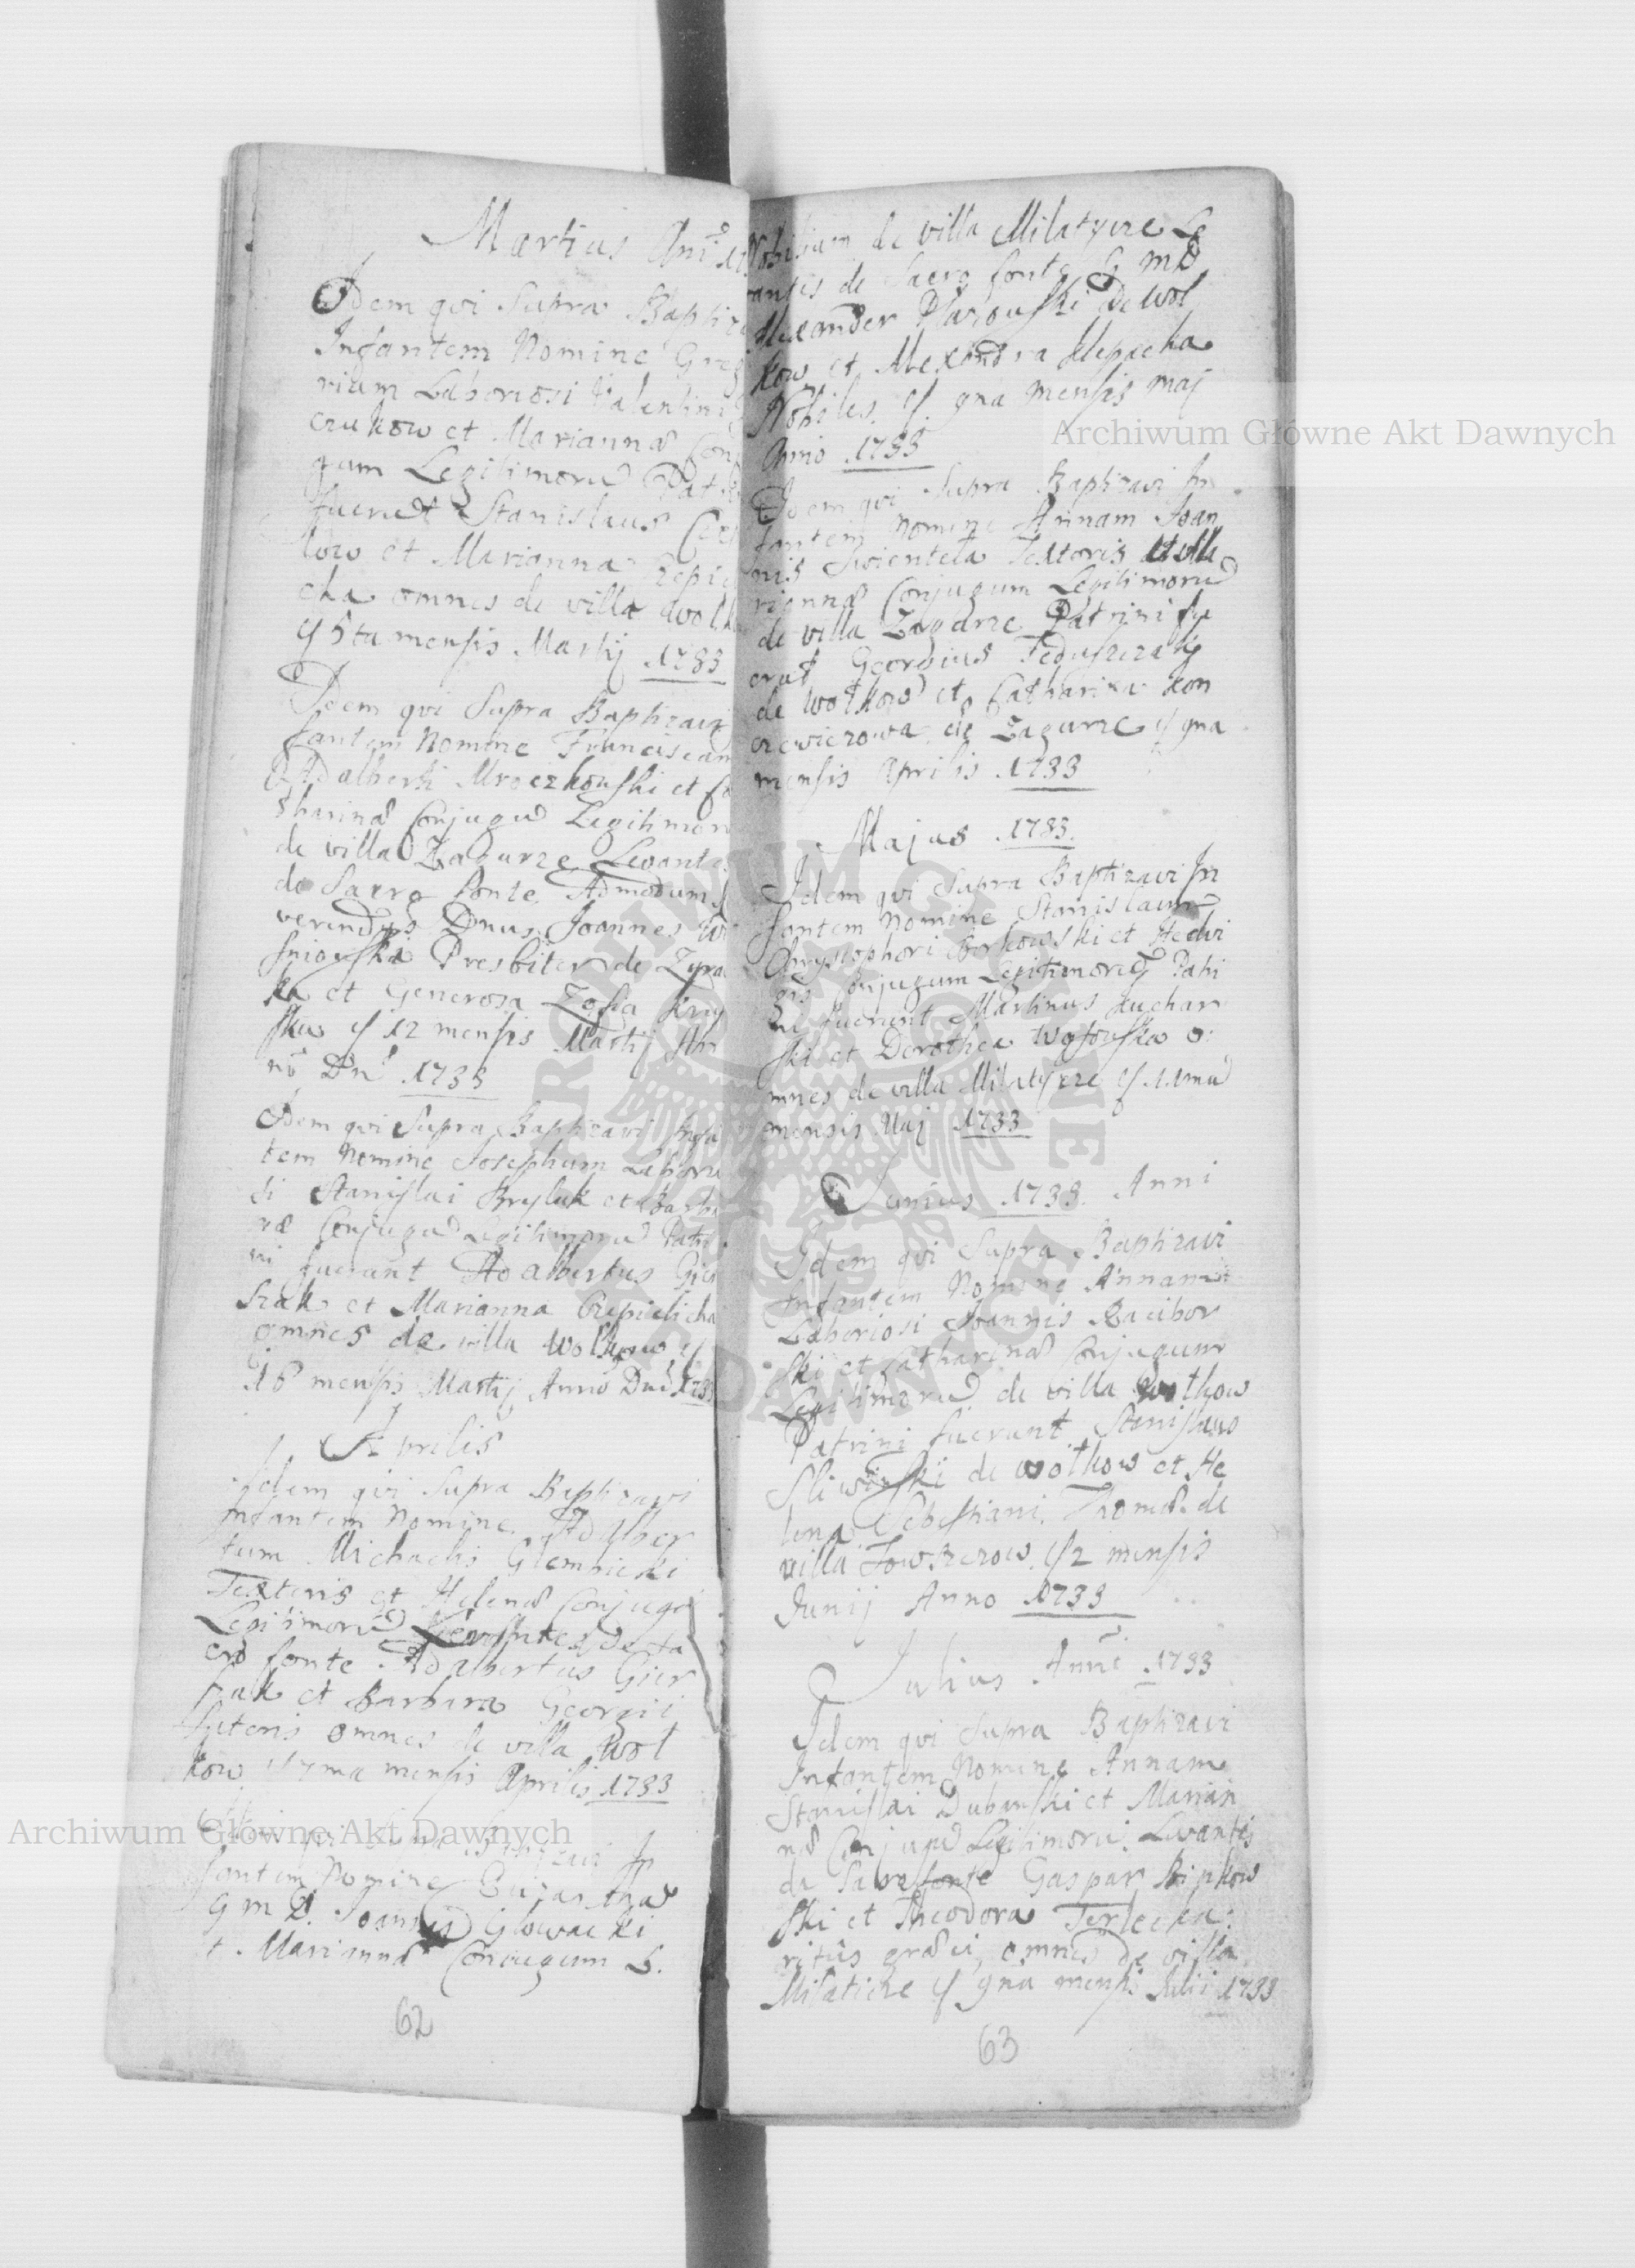 Martius Anni
Idem qvi Supra Baptiza
Infantem Nomine Greg
rium Laboriosi Valentini
czukow et Mariannæ Con
gum Legitimorũ Patri
fuerũt Stanislaus
low et Marianna
cha omnes de villa Wolk
6ta mensis Martij 1733
Idem qvi Supra Baptizavi
fantem Nomine Franciscam
Adalberti Mroczkowski et Ca
tharinæ Conjugũ Legitimor
de villa Zagurze Levant
de Sacro Fonte Admodum
verendus Dnus Joannes Wi
sniowski Presbiter de Zyra
ka et Generosa Zofia Kry
ska 12 mensis Martij An
ni Dni 1733
Idem qvi Supra Baptizavi Infa
tem Nomine Josephum Laborio
si Stanislai Bryluk et Barba
ræ Conjugũ Legitimorũ Patri
ni fuerant Adalbertus Gier
szak et Marianna Czepielicha
omnes de villa Wolkow
16 mensis Martij Anno Dni 1733
Aprilis
Idem qvi Supra Baptizavi
Infantem Nomine Adalber
tum Michaelis Glemnicki
Textoris et Helenæ Conjugũ
Legitimorũ Levantes de Sa
cro fonte Adalbertus Gier
szak et Barbara Georgii
Sutoris omnes de villa Wol
kow 7ma mensis Aprilis 1733
Idem qvi Supra Baptizavi In
fantem Nomine
G M D. Joannis Glowacki
et Mariannæ Conjugum L.
62
Nobilium de villa Milatycze Le
vantes de Sacro fonte G M D
Alexander Plazowski de Wol
kow et Alexandra Klepacka
Nobiles. 9na mensis Maj
Anno 1733
Idem qvi Supra Baptizavi In
fantem Nomine Annam Joan
nis Swientela Textoris et Ma
riannæ Conjugum Legitimorũ
de villa Zagurze Patrini fu
erũt Georgius Feduszczak
de Wolkow et Catharina Kon
cewiczowa de Zagurze 9na
mensis Aprilis 1733
Majus 1733
Idem qvi Supra Baptizavi In
fantem Nomine Stanislaum
Chrystophori Borkowski et Hedvi
gis Conjugum Legitimorũ Patri
ni fuerunt Martinus Kuchar
ski et Dorothea Wosowska o
mnes de villa Milatycze 11ma
mensis Maj 1733
Junius 1733. Anni
Idem qvi Supra Baptizavi
Infantem Nomine Annam
Laboriosi Joannis Racibor
ski et Catharinæ Conjugum
Legitimorũ de villa Wolkow
Patrini fuerunt Stanislaus
Sliwinski de Wolkow et He
lena Sebestiani Thomæ de
villa Towszczow 2 mensis
Junij Anno 1733
Julius Anni 1733
Idem qvi Supra Baptizavi
Infantem Nomine Annam
Stanislai Dubanski et Marian
næ Conjugũ Legitimorũ. Levantes
de Sacro fonte Gaspar Binkow
ski et Theodora Terlecka
ritûs græci, omnes de villa
Milaticze 9na mensis Julii 1733
63
Archiwum Główne Akt Dawnych
Archiwum Główne Akt Dawnych
ARCHIWUM GŁÓWNE AKT DAWNYCH